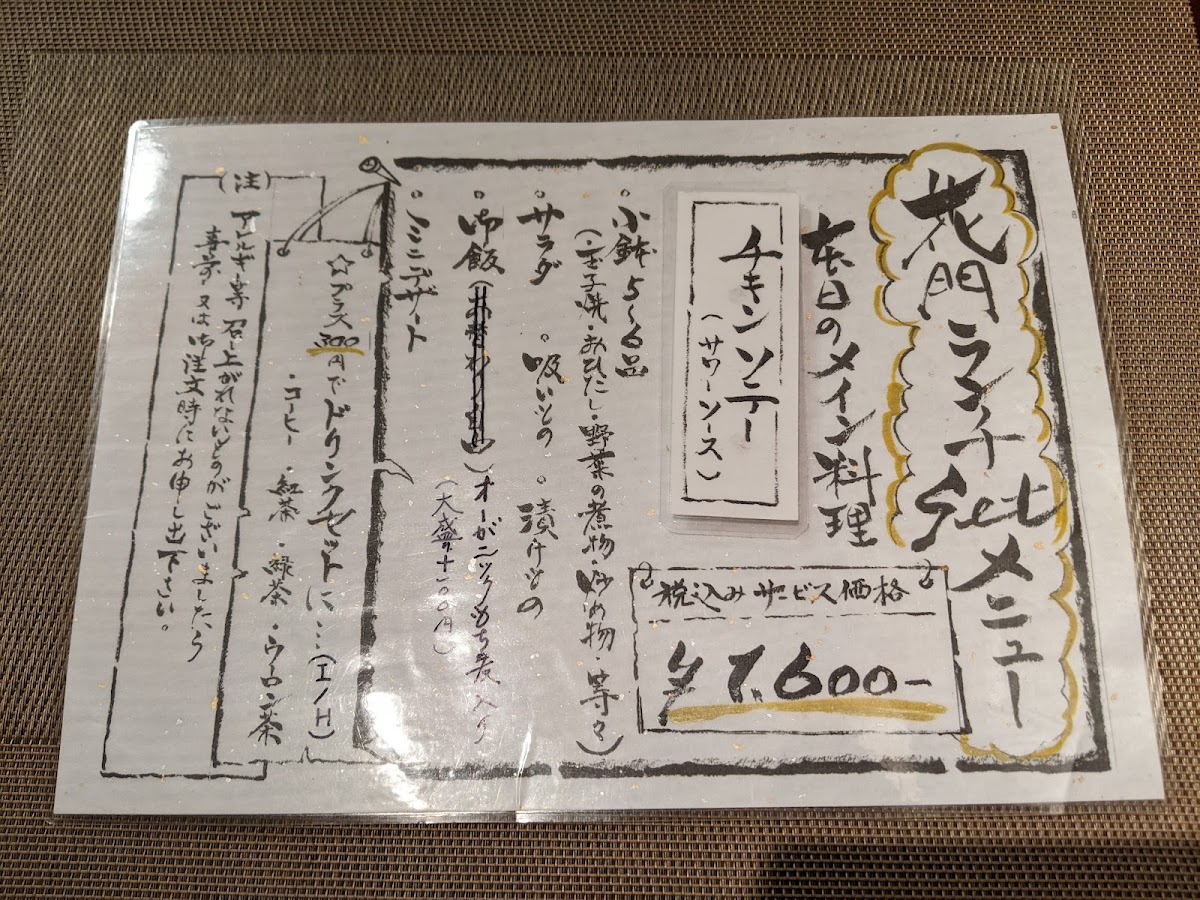 花門ランチSetメニュー
本日のメイン料理
チキンソテー
(サワーソース)
税込みサービス価格
¥1,600-
。小鉢5〜6品
(玉子焼・おひたし・野菜の煮物・炒め物・等々)
。サラダ 。吸いもの 。漬けもの
。御飯(お替わり自由)オーガニックもち麦入り
(大盛り+100円)
。ミニデザート
☆プラス300円でドリンクセットに…(I/H)
・コーヒー ・紅茶 ・緑茶 ・ウーロン茶
(注)
アレルギー等 召し上がれないものがございましたら
事前 又は御注文時にお申し出下さい。